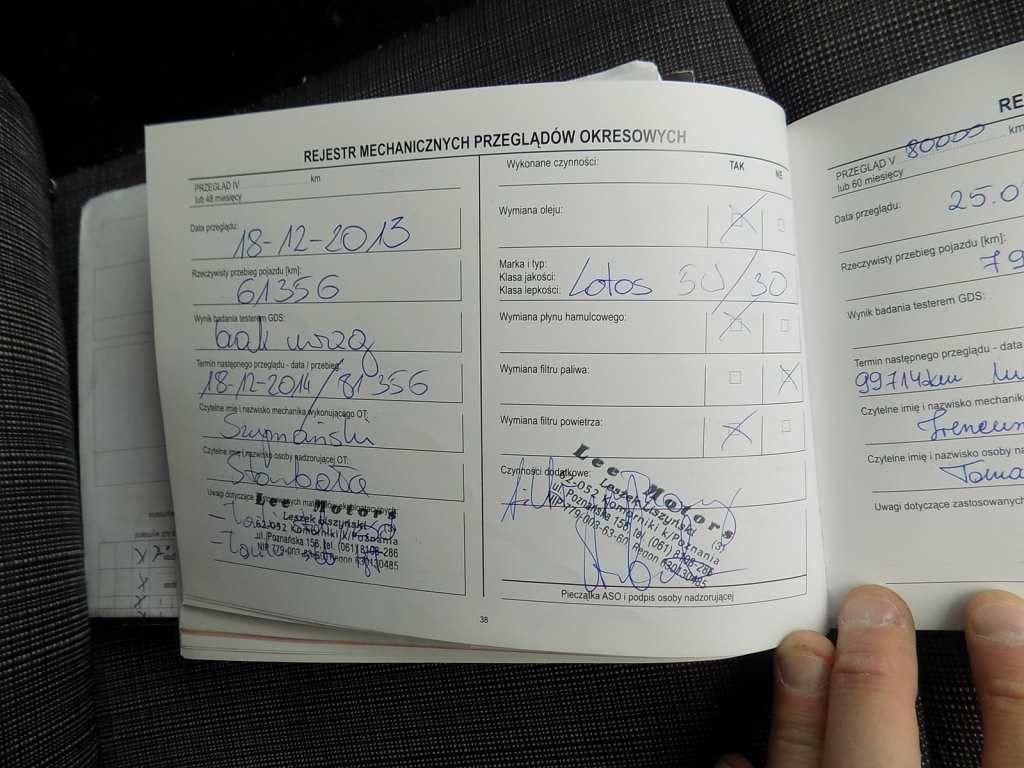 REJESTR MECHANICZNYCH PRZEGLĄDÓW OKRESOWYCH
PRZEGLĄD IV km
lub 48 miesięcy
Data przeglądu:
18-12-2013
Rzeczywisty przebieg pojazdu [km]:
61356
Wynik badania testerem GDS:
brak uwag
Termin następnego przeglądu - data / przebieg:
18-12-2014/81356
Czytelne imię i nazwisko mechanika wykonującego OT:
Szymański
Czytelne imię i nazwisko osoby nadzorującej OT:
Uwagi dotyczące
Lee Motors
Leszek Liszyński
62-052 Komorniki k/Poznania
ul. Poznańska 156, tel. (061) 8108-286
NIP 779-003-63-60 Regon 630130485
Wykonane czynności: TAK NIE
Wymiana oleju:
Marka i typ:
Klasa jakości:
Klasa lepkości:
Lotos 5W/30
Wymiana płynu hamulcowego:
Wymiana filtru paliwa:
Wymiana filtru powietrza:
Czynności dodatkowe:
Lee Motors
Leszek Liszyński (3)
62-052 Komorniki k/Poznania
ul. Poznańska 156, tel. (061) 8108-286
NIP 779-003-63-60 Regon 630130485
Pieczątka ASO i podpis osoby nadzorującej
38
RE
PRZEGLĄD V 80000 km
lub 60 miesięcy
Data przeglądu:
25.0
Rzeczywisty przebieg pojazdu [km]:
79
Wynik badania testerem GDS:
Termin następnego przeglądu - data
99714km
Czytelne imię i nazwisko mechanik
Czytelne imię i nazwisko osoby na
Toma
Uwagi dotyczące zastosowanych